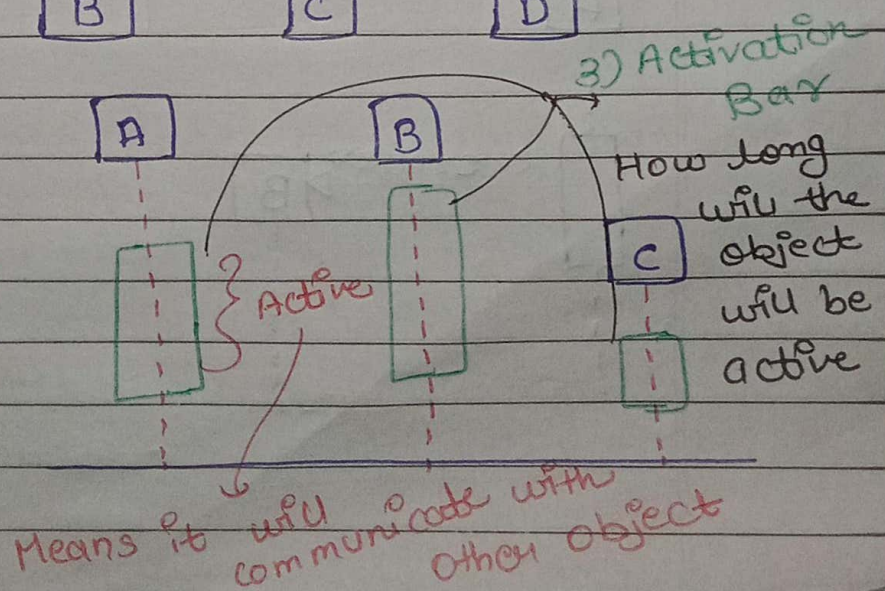 B C D
3) Activation
Bar
A B
How long
will the
C object
Active
will be
active
Means it will
communicate with
other object